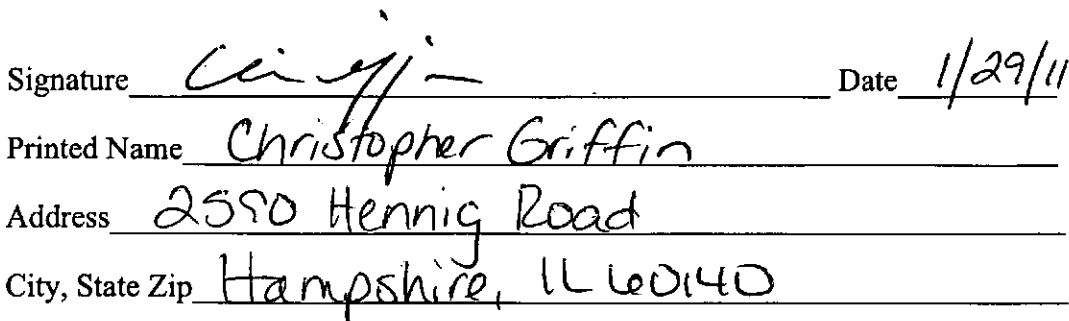 Signature Date 1/29/11
Printed Name Christopher Griffin
Address Hennig Road
City, State Zip Hampshire, IL 60140